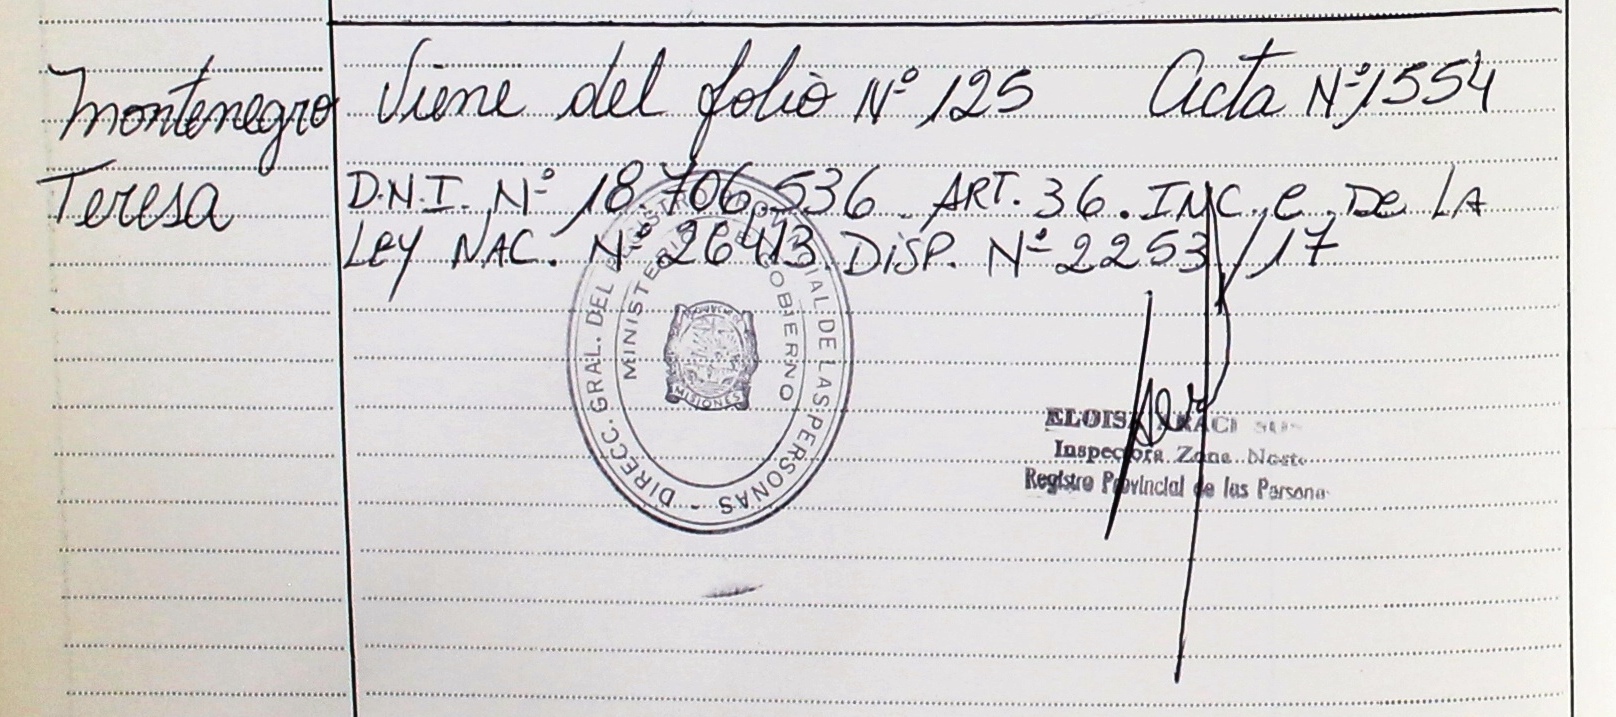 Montenegro Viene del folio Nº 125 Acta Nº 1554
Teresa D.N.I. Nº 18.706.536. ART. 36. INC. e. De LA
Ley NAC. Nº 26413. DiSP. Nº 2253/17
DIRECC. GRAL. DEL REGISTRO PROVINCIAL DE LAS PERSONAS -
MINISTERIO DE GOBIERNO
MISIONES
ELOISA ARACI
Inspectora Zona
Registro Provincial de las Persona